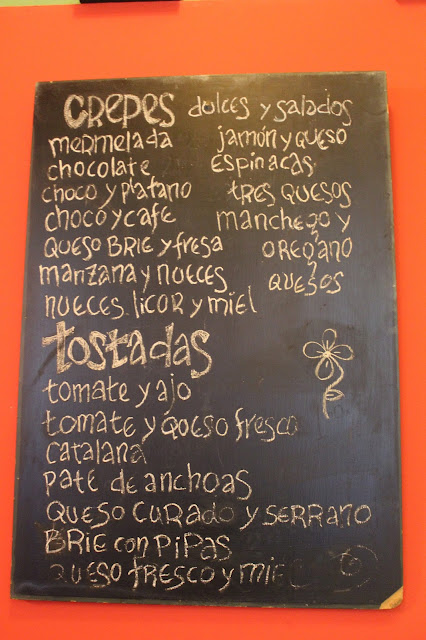 CREPES dulces y salados
mermelada
chocolate
choco y platano
choco y cafe
QUESO BRIE y fresa
manzana y nueces
nueces licor y miel
jamón y queso
espinacas
tres quesos
manchego y
oregano
quesos
tostadas
tomate y ajo
tomate y queso fresco
catalana
pate de anchoas
QUESO CURADO y SERRANO
BRIE con PIPAS
QUESO fresco y miel